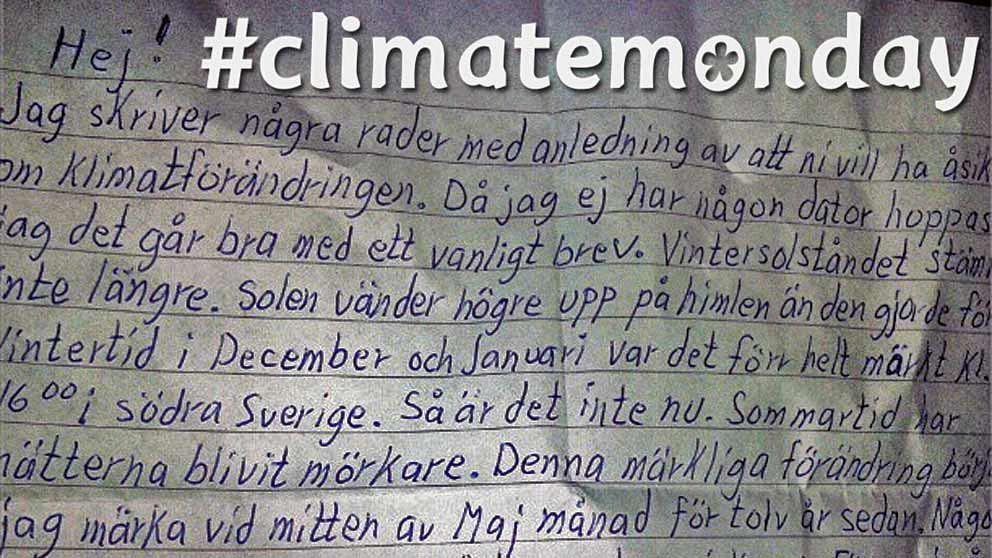 #climatemonday
Hej!
Jag skriver några rader med anledning av att ni vill ha åsik
om Klimatförändringen. Då jag ej har någon dator hoppas
jag det går bra med ett vanligt brev. Vintersolståndet stäm
inte längre. Solen vänder högre upp på himlen än den gjorde för
Vintertid i December och Januari var det förr helt märkt kl.
16 00 i södra Sverige. Så är det inte nu. Sommartid har
nätterna blivit mörkare. Denna märkliga förändring börj
jag märka vid mitten av Maj månad för tolv år sedan. Någo